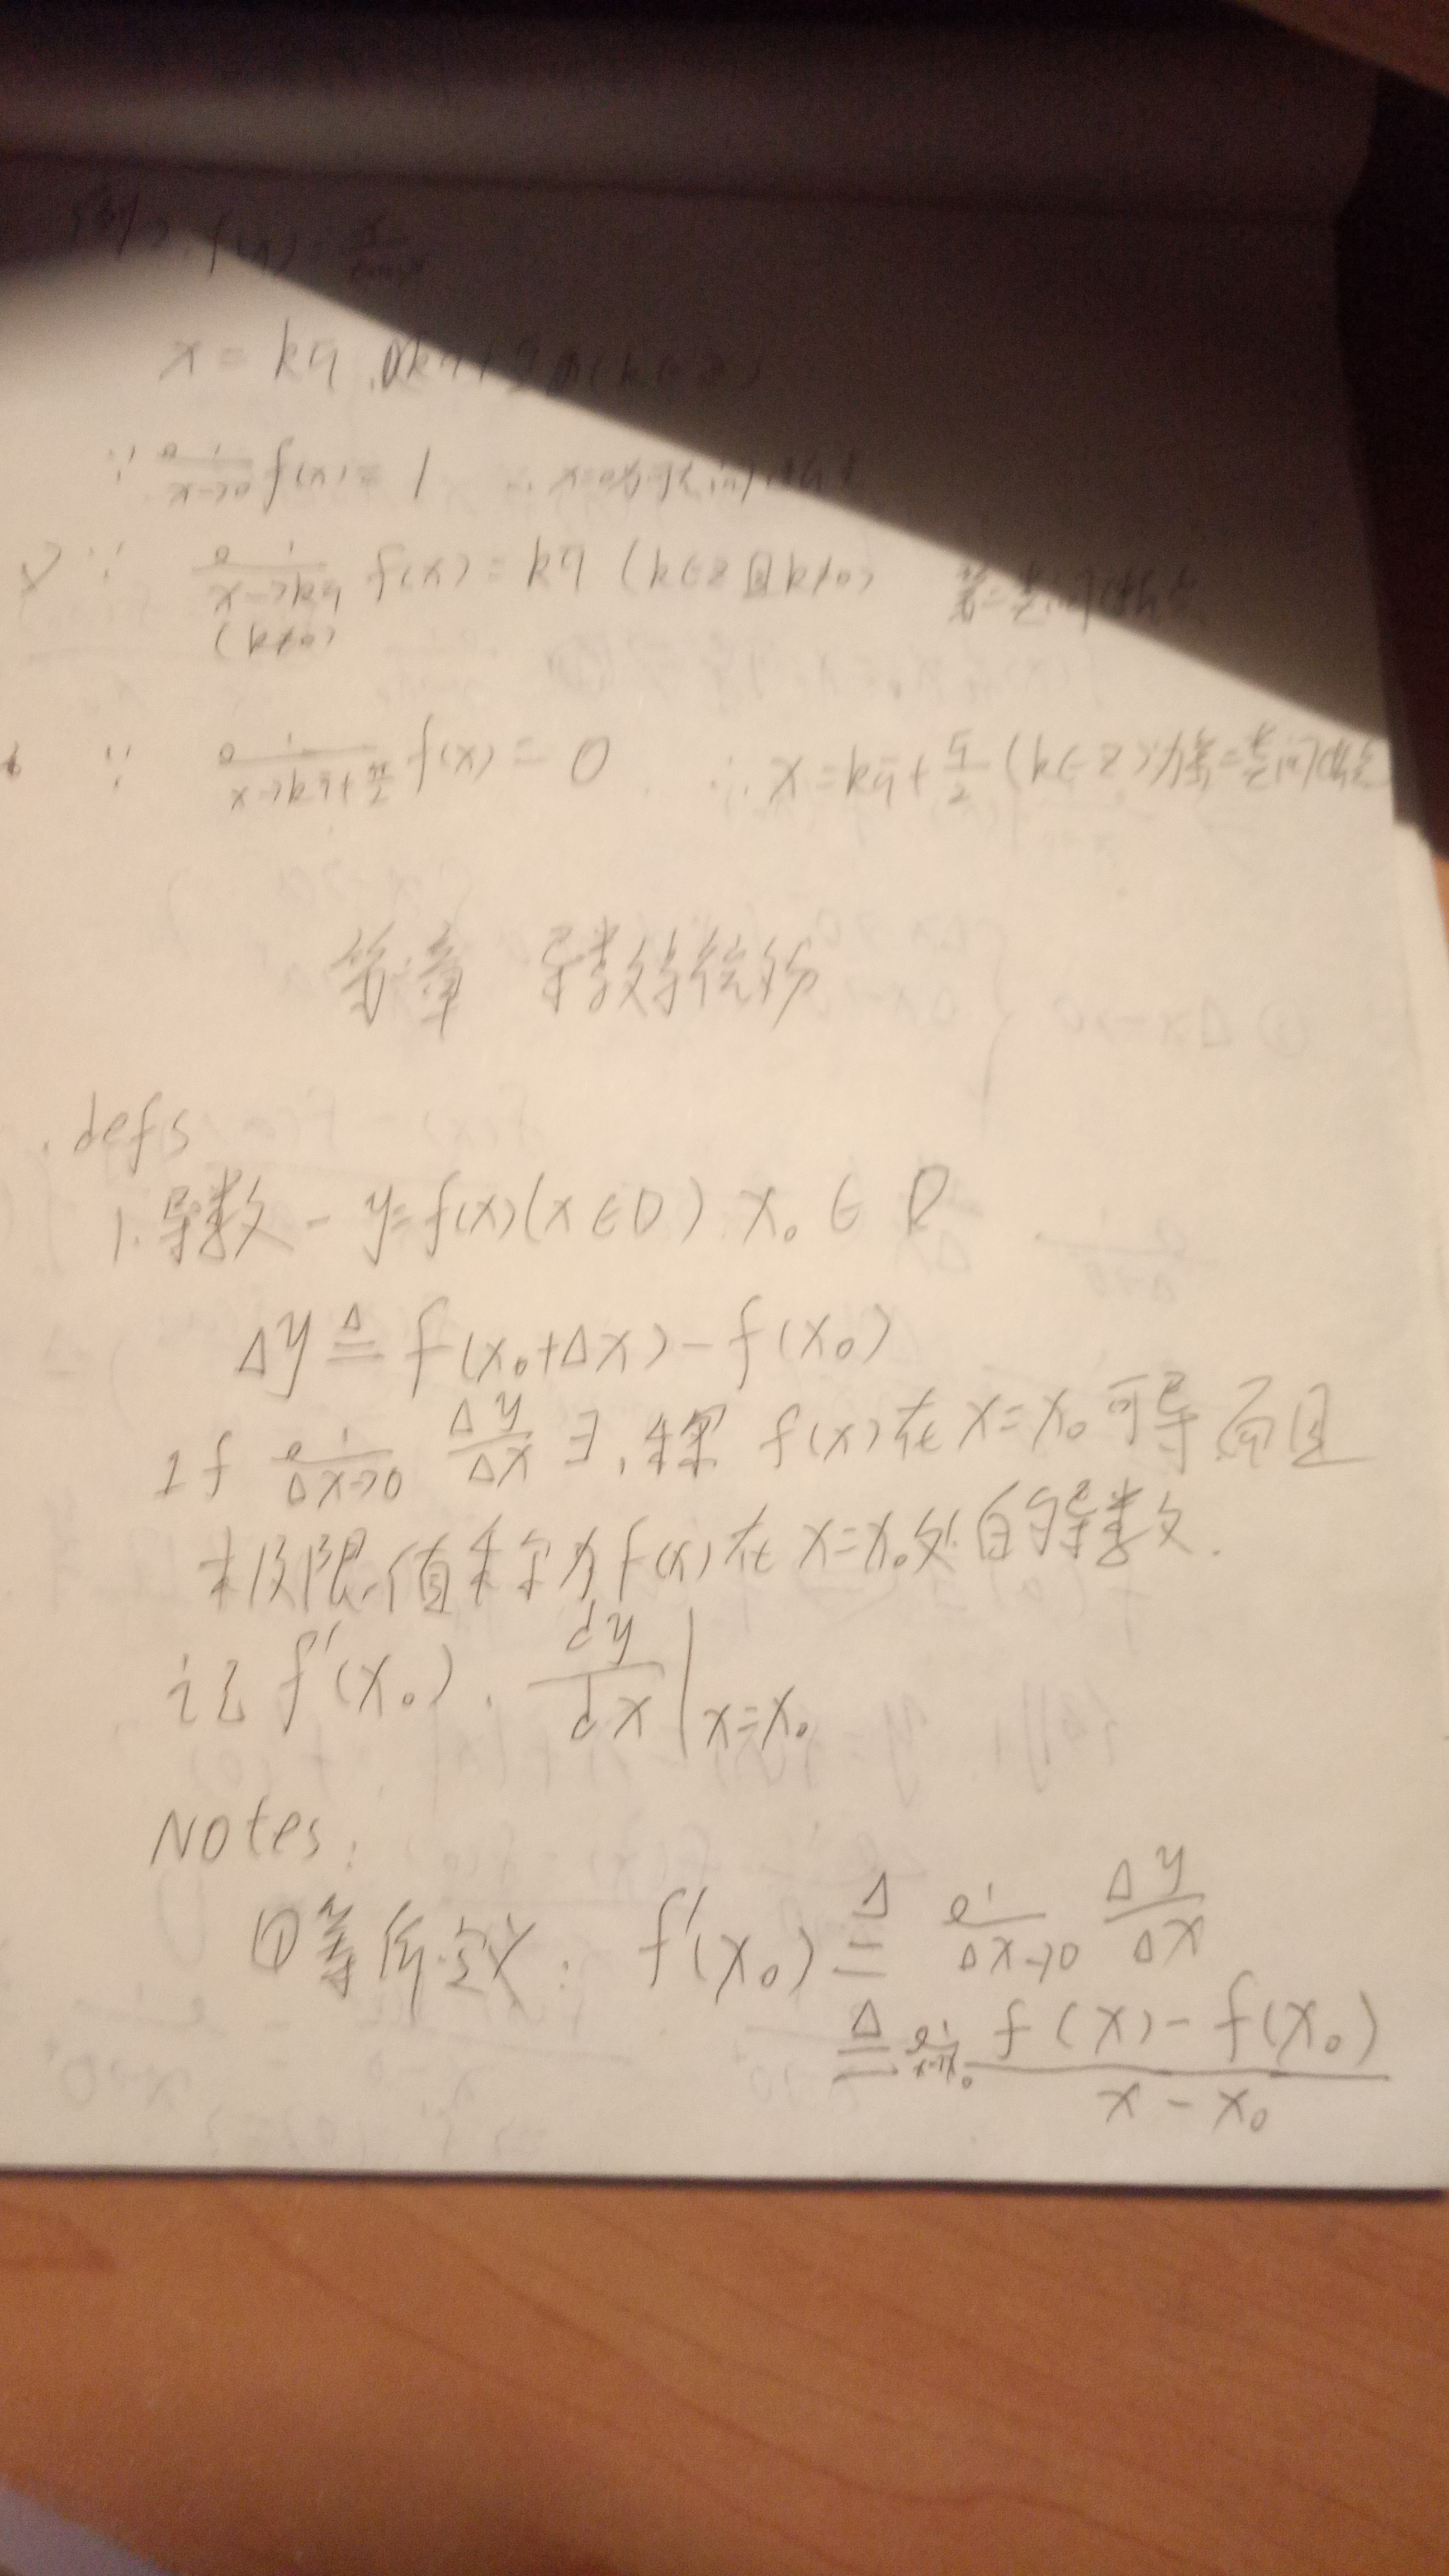 f(x) = x/tanx
x = kπ, kπ+π/2 (k∈Z)
∵ lim x→0 f(x) = 1 ∴ x=0为可去间断点
∵ lim x→kπ (k≠0) f(x) = kπ (k∈Z且k≠0) 第二类间断点
∵ lim x→kπ+π/2 f(x) = 0 ∴ x=kπ+π/2 (k∈Z)为第二类间断点
章 导数与微分
defs
1. 导数 - y=f(x)(x∈D) x₀∈D
Δy ≜ f(x₀+Δx) - f(x₀)
If lim Δx→0 Δy/Δx ∃, 称 f(x)在x=x₀可导, 而且
极限值称为f(x)在x=x₀处的导数.
记 f'(x₀). dy/dx |x=x₀
Notes:
①等价定义: f'(x₀) ≜ lim Δx→0 Δy/Δx
≜ lim x→x₀ f(x)-f(x₀)/x-x₀